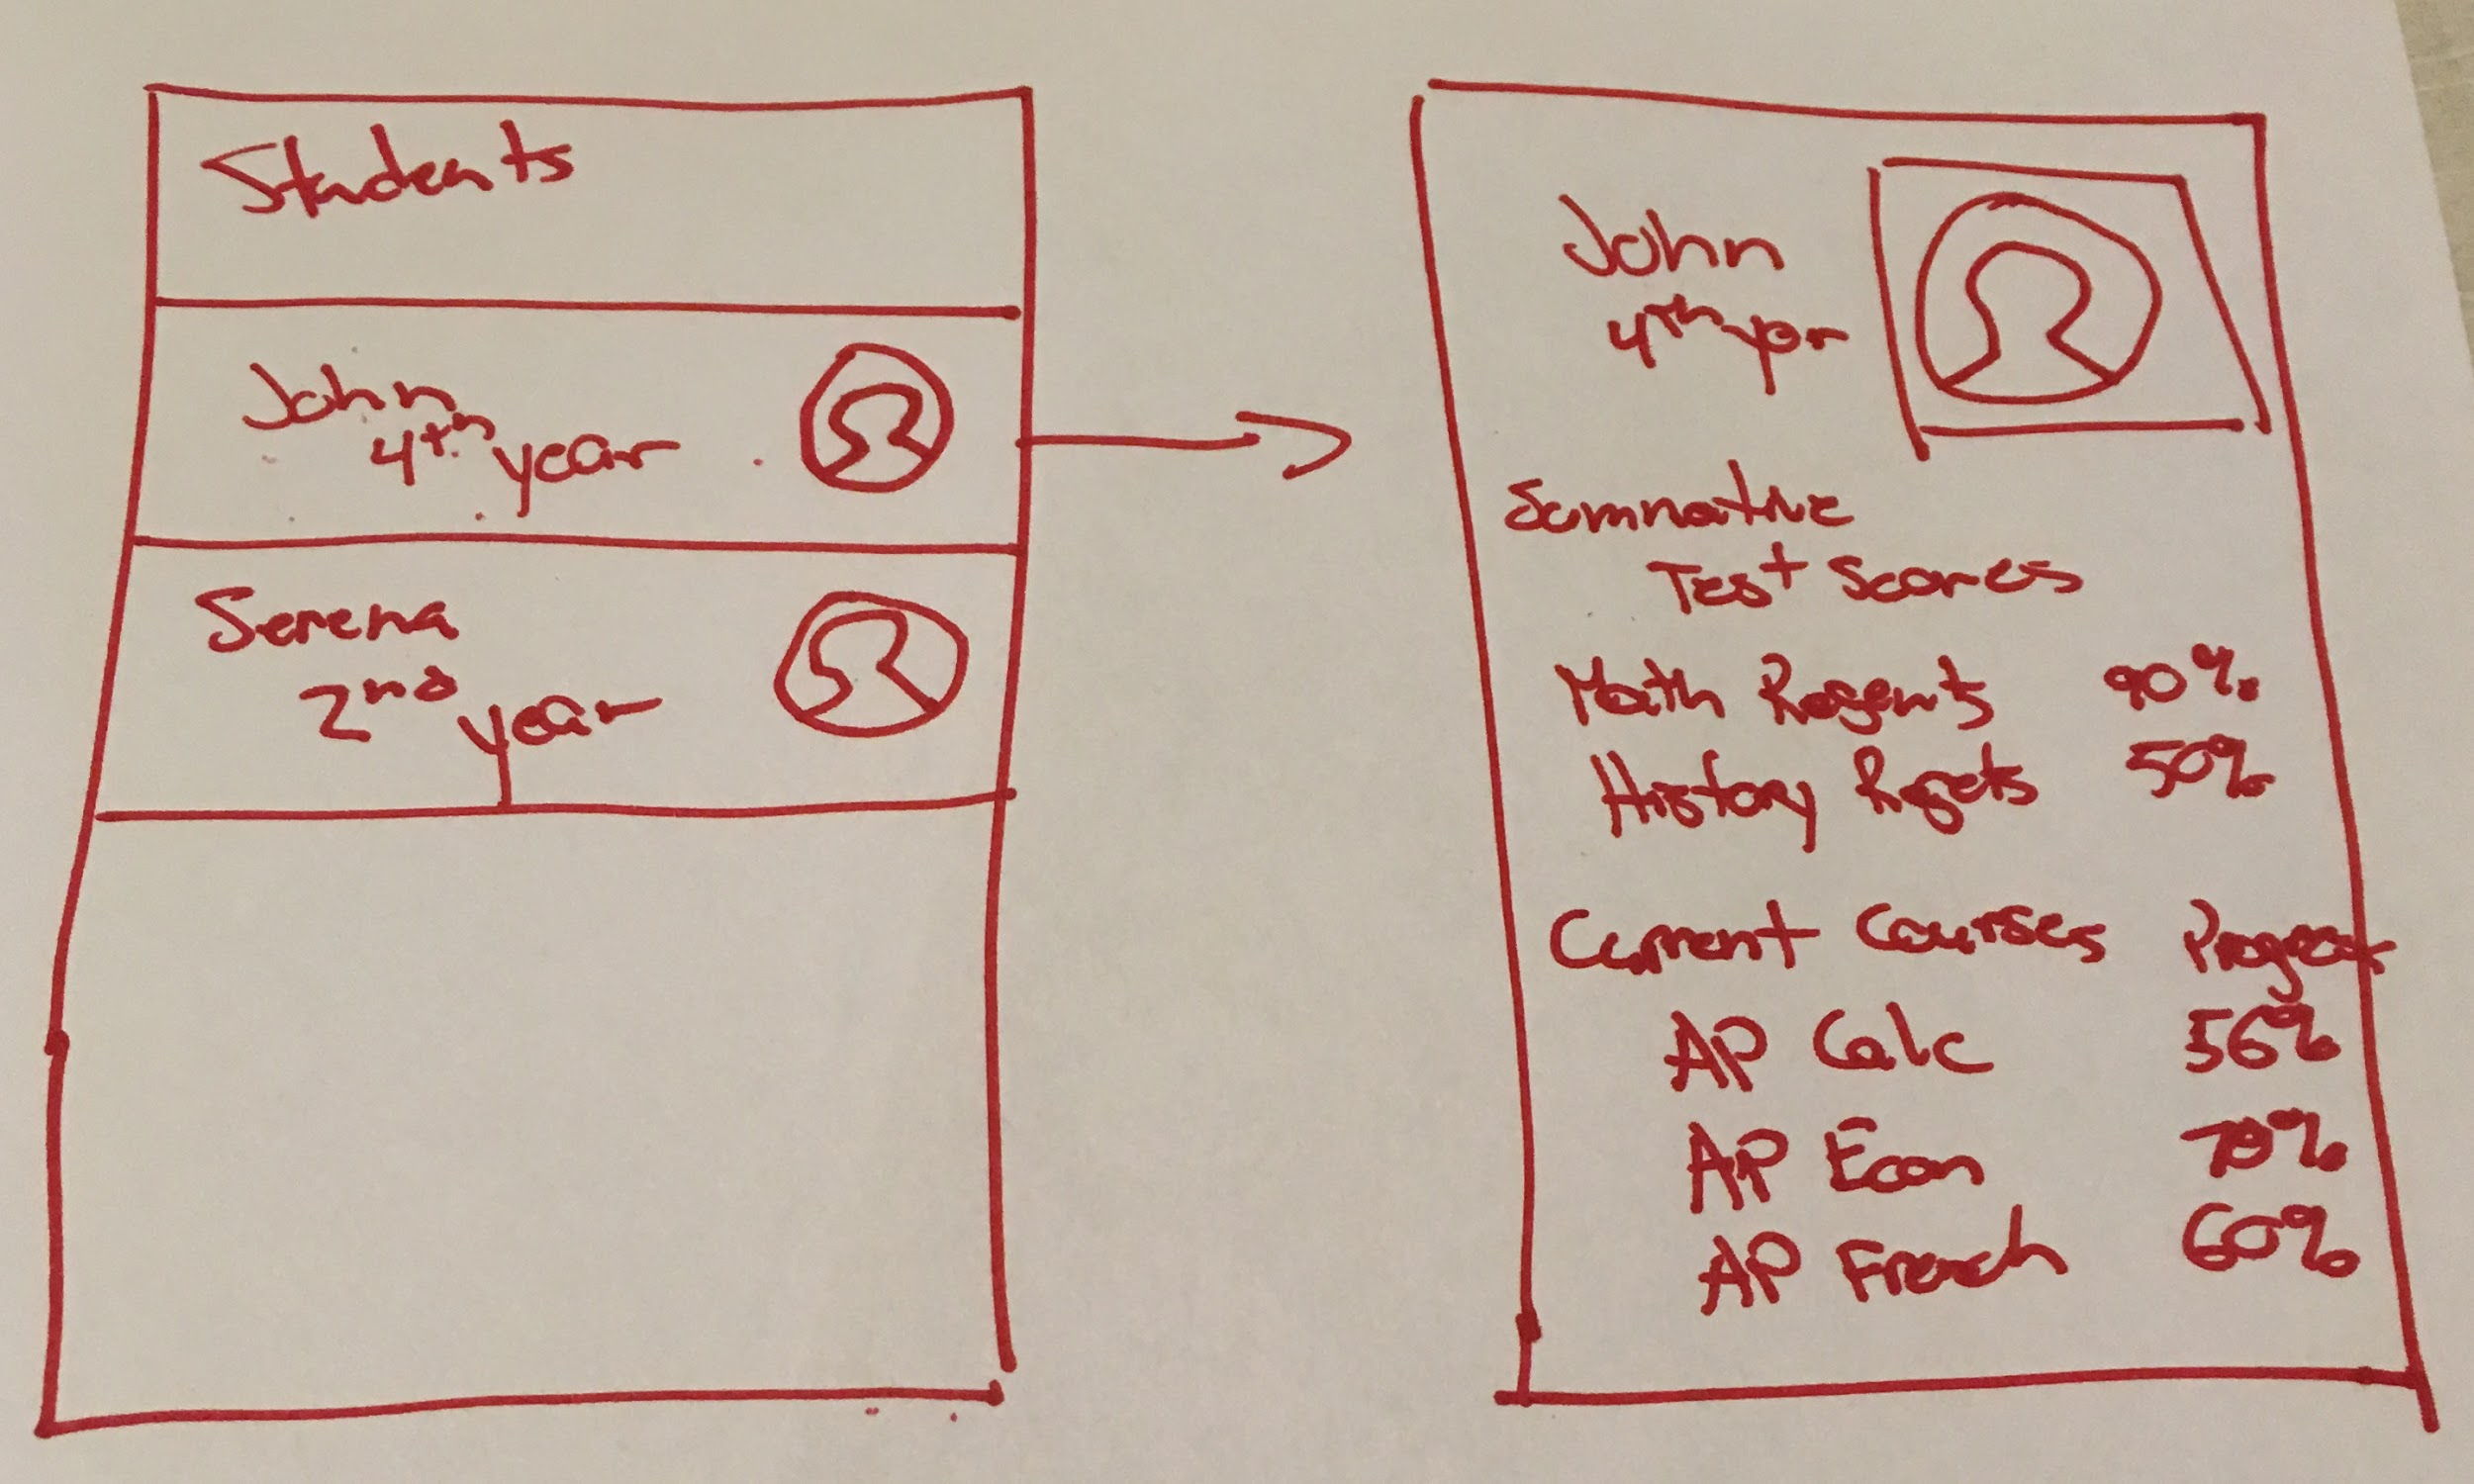 Students
John
4th year
Serena
2nd year
John
4th year
Summative
Test Scores
Math Regents 90%
History Regets 50%
Current Courses Progress
AP Calc 56%
AP Econ 70%
AP French 60%